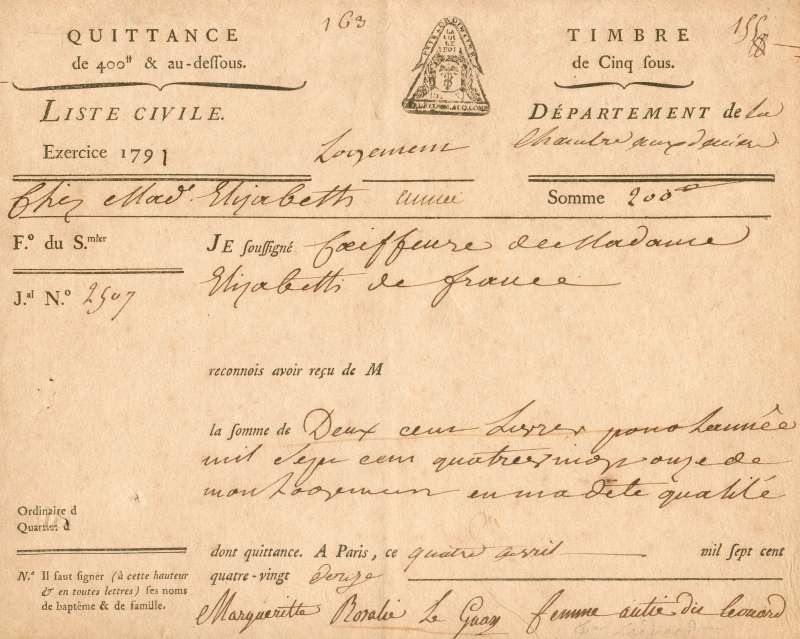 163
155
QUITTANCE
de 400ᵗᵗ & au-deſſous.
LA
LOI
LE
ROI
TIMBRE
de Cinq ſous.
LISTE CIVILE.
Exercice 1791
Logement
DÉPARTEMENT de la
Chambre aux deniers
Chez Mad.ᵉ Elizabeth année
Somme 200
F.º du S.ᵐⁱᵉʳ
J.ᵃˡ N.º 2507
JE ſouſſigné Coeiffeure de Madame
Elizabeth de france
reconnois avoir reçu de M
la ſomme de Deux cent Livres pour Lannéé
mil Sept cent quatrevingt onze de
mon Logement en madete qualité
Ordinaire d
Quartier d
dont quittance. A Paris, ce quatre avril mil sept cent
quatre-vingt douze
N.ª Il faut signer (à cette hauteur
& en toutes lettres) ſes noms
de baptême & de famille.
Margueritte Rosalie Le Guay femme autié dit Leonard